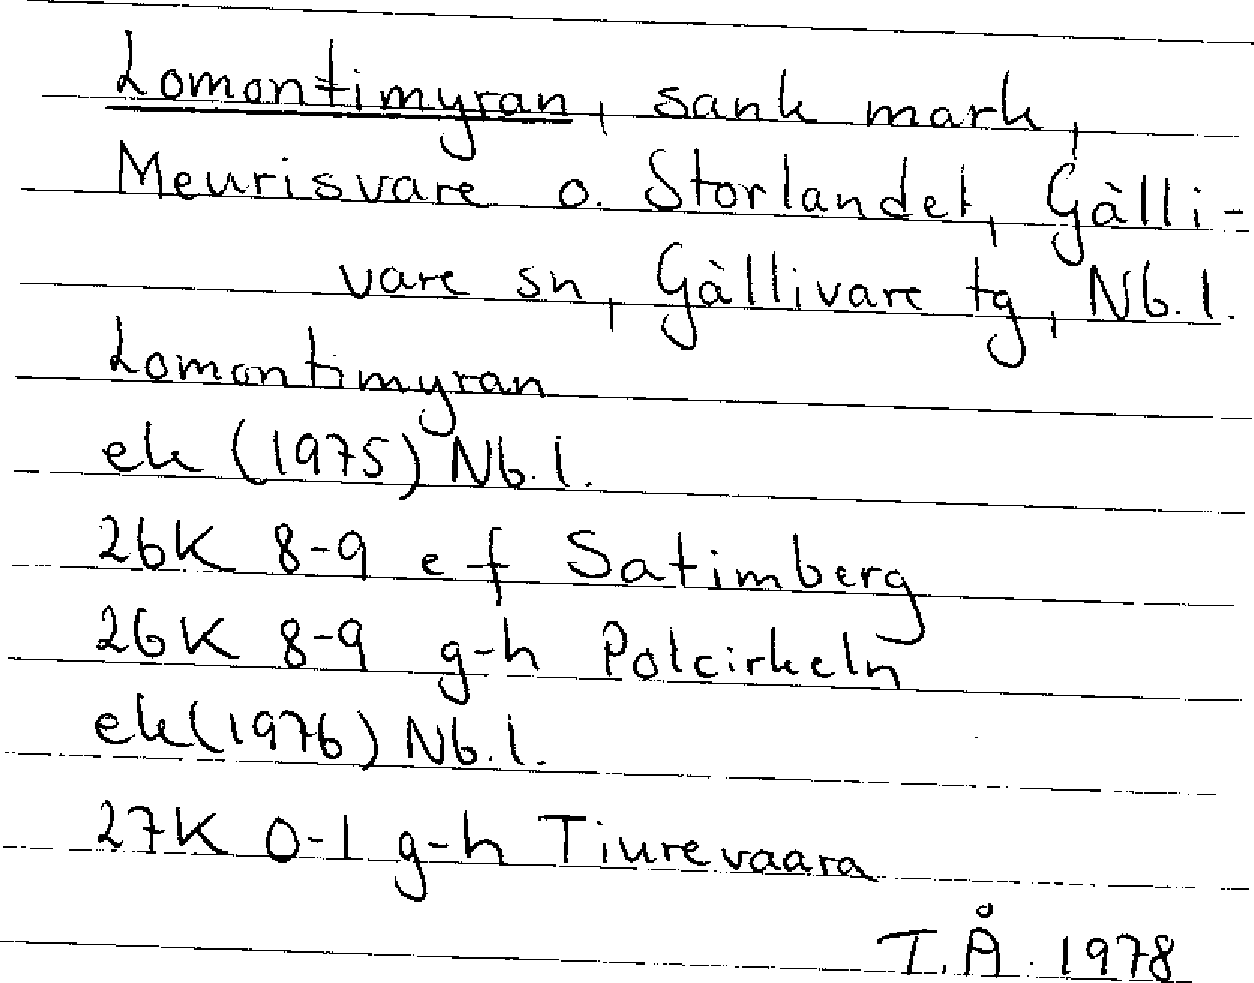 Lomontimyran, sank mark,
Meurisvare o. Storlandet, Gälli-
vare sn, Gällivare tg, Nb. l.
Lomontimyran
ek (1975) Nb. l.
26K 8-9 e-f Satimberg
26K 8-9 g-h Polcirkeln
ek (1976) Nb. l.
27K 0-1 g-h Tiurevaara
T.Å. 1978